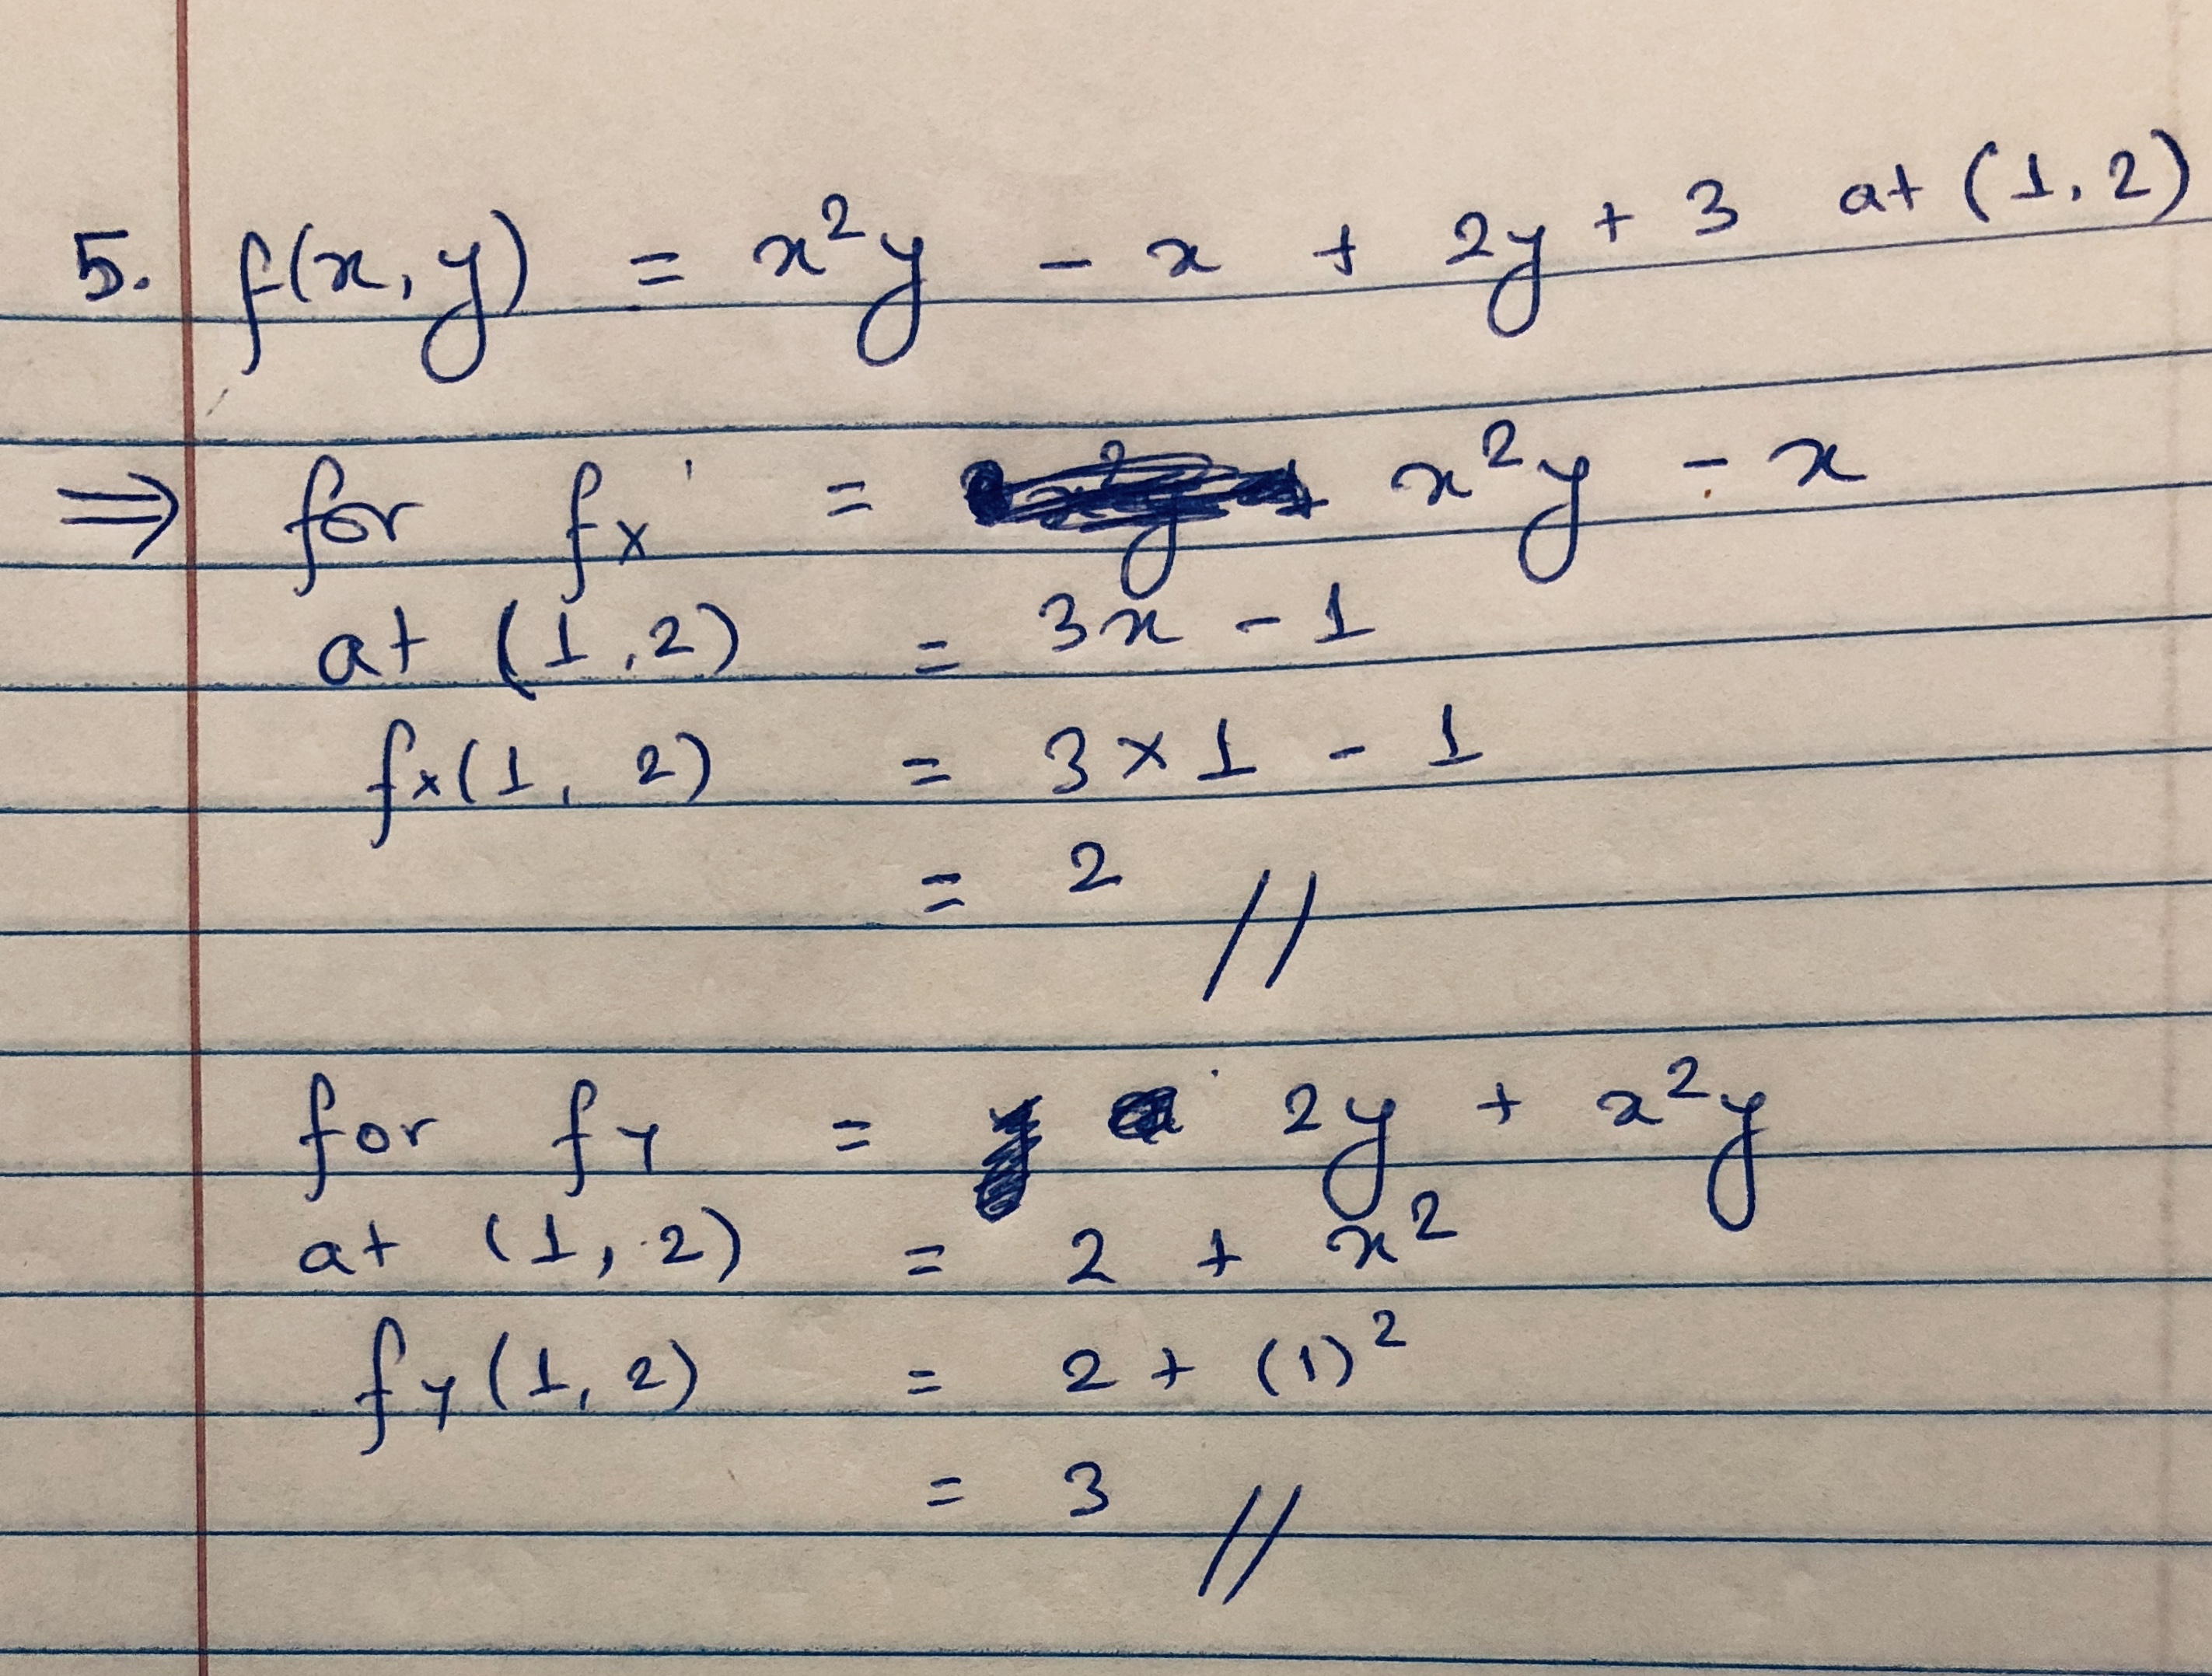 5. f(x, y) = x²y - x + 2y + 3 at (1, 2)
⇒ for fx = x²y - x
at (1, 2) = 3x - 1
fx(1, 2) = 3 × 1 - 1
= 2 //
for fy = 2y + x²y
at (1, 2) = 2 + x²
fy(1, 2) = 2 + (1)²
= 3 //